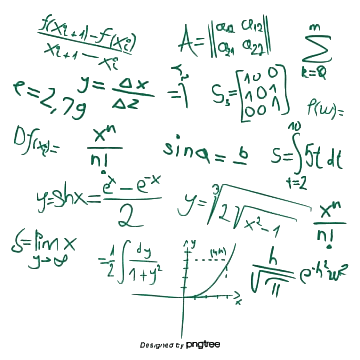 f(xi+1)-f(xi) / xi+1 - xi
A = ||a11 a12 a21 a22||
m Σ k=0
e=2,7g
y = Δx / Δz
S3 = [1 0 0 1 0 1 0 0 1]
P(w)=
Df(x)=
x^n / n!
sina = b
S = ∫ 5t dt 10 t=2
y=shx = e^x - e^-x / 2
y = ³√2√x²-1
x^n / n!
S=lim x y→∞
= 1/2 ∫ dy / 1+y²
y
x
h / √π e^-h²w²
Designed by pngtree